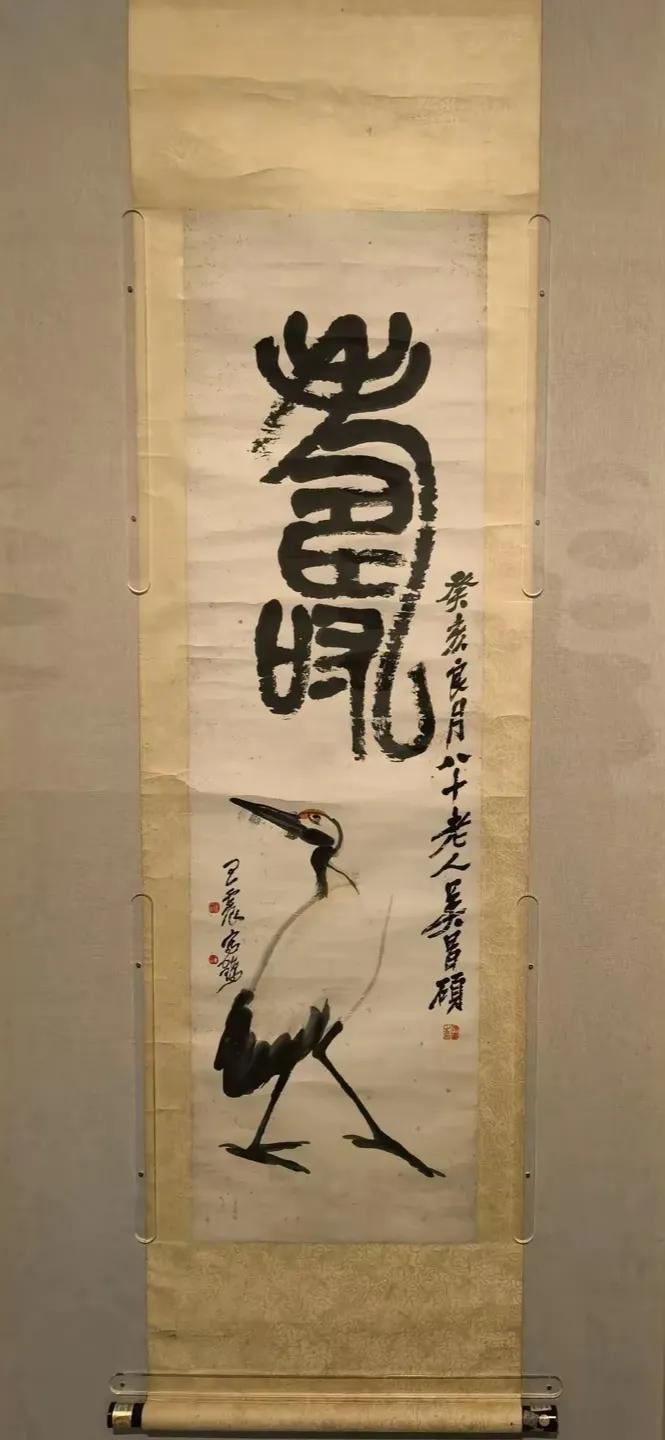 壽
癸亥良月八十老人吳昌碩
王震寫鶴